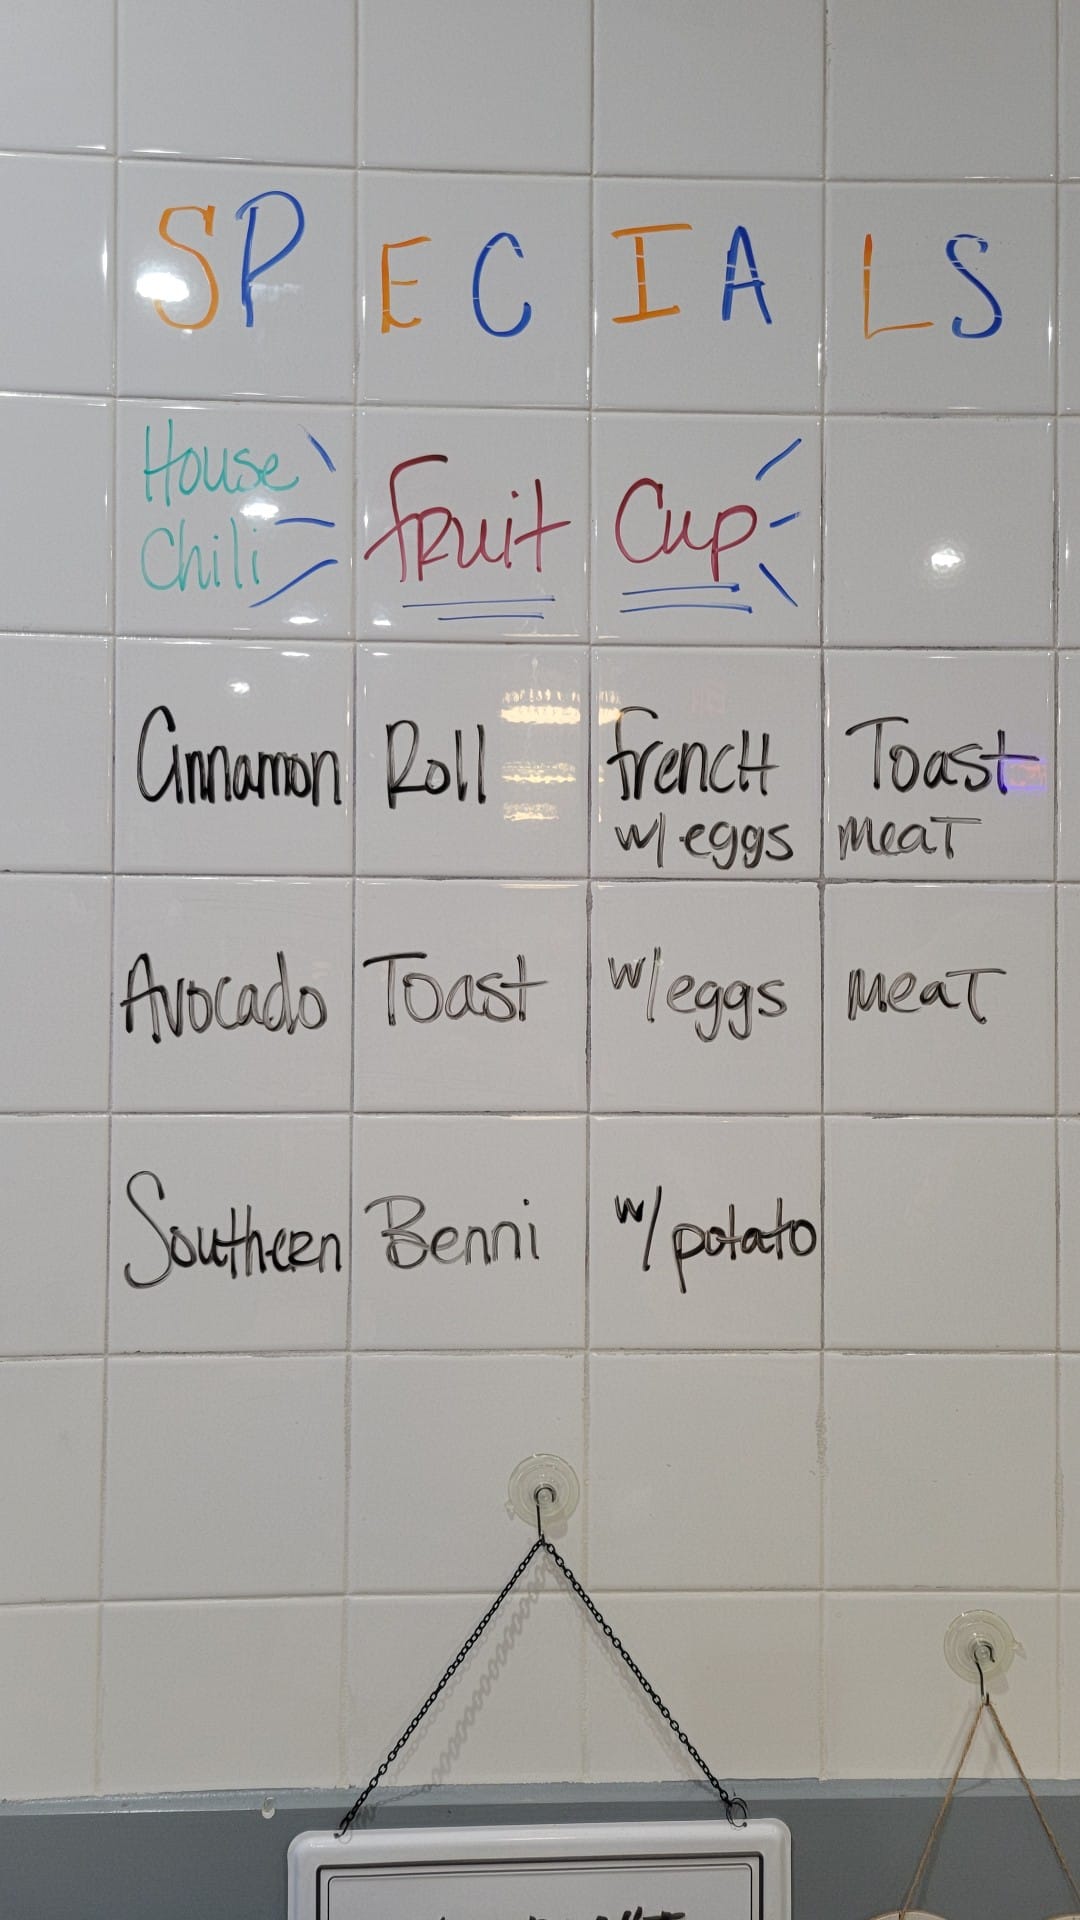 SPECIALS
House
Chili
Fruit Cup
Cinnamon Roll French Toast
w/eggs meat
Avocado Toast w/eggs meat
Southern Benni w/potato